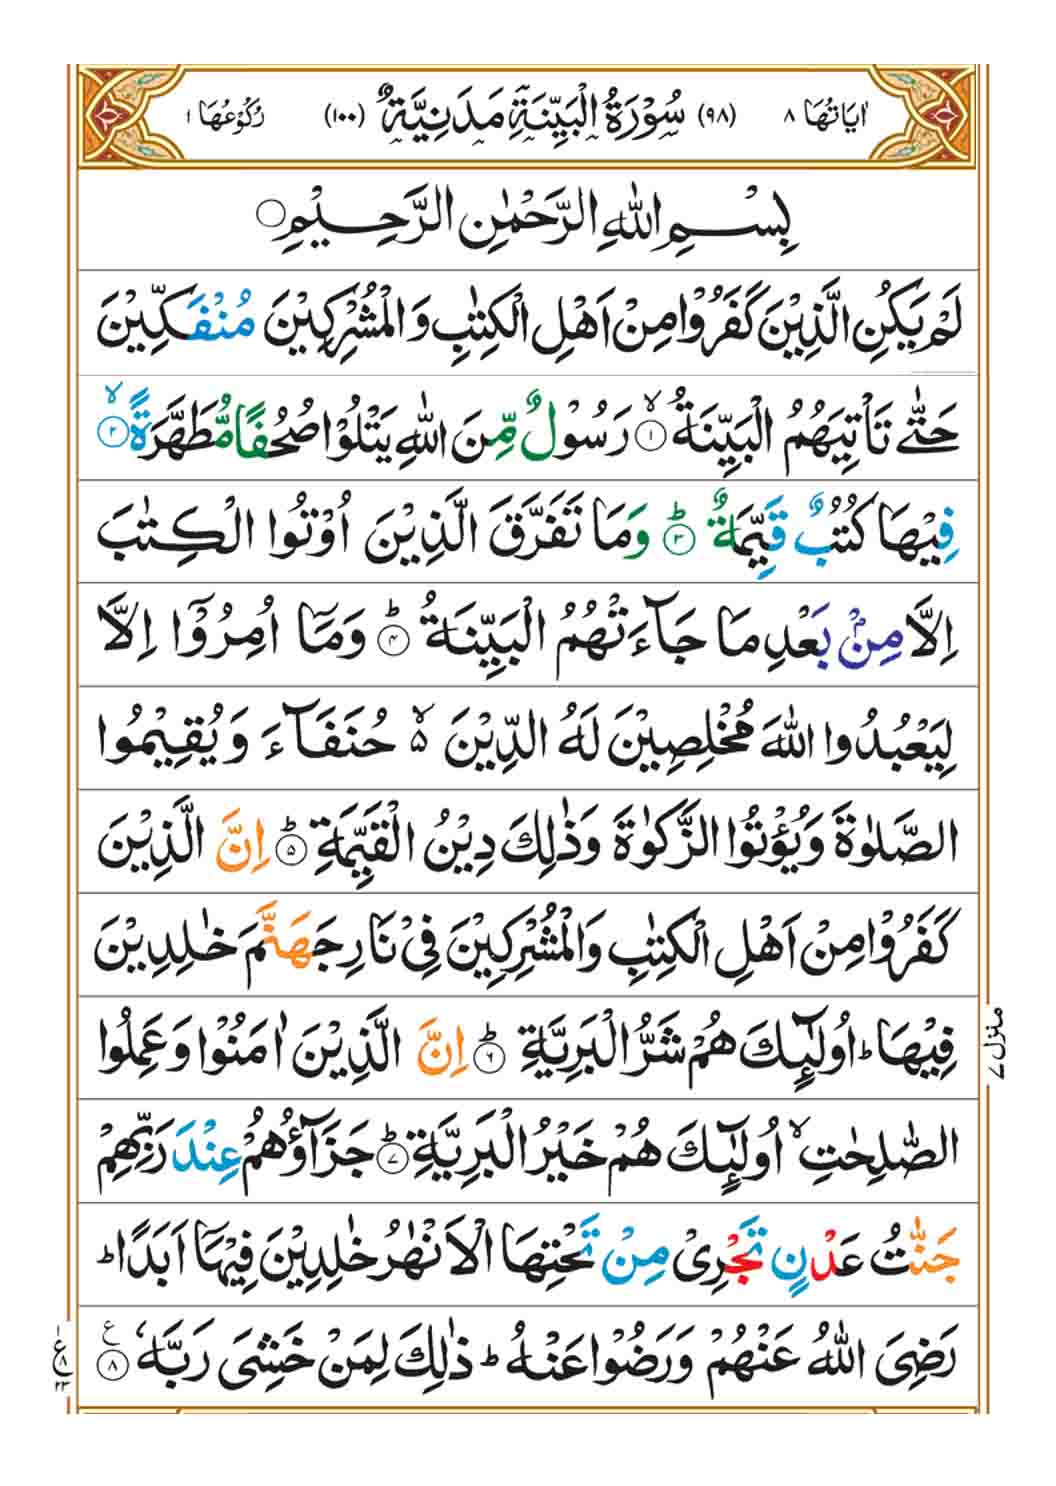 اٰيَاتُهَا ٨ (٩٨) سُوۡرَةُ الۡبَيِّنَةِ مَدَنِيَّةٌ (١٠٠) رُكُوۡعُهَا ١
بِسۡمِ اللهِ الرَّحۡمٰنِ الرَّحِيۡمِ ۝
لَمۡ يَكُنِ الَّذِيۡنَ كَفَرُوۡا مِنۡ اَهۡلِ الۡكِتٰبِ وَالۡمُشۡرِكِيۡنَ مُنۡفَكِّيۡنَ
حَتّٰى تَاۡتِيَهُمُ الۡبَيِّنَةُ ۙ‏﴿۱﴾ رَسُوۡلٌ مِّنَ اللهِ يَتۡلُوۡا صُحُفًا مُّطَهَّرَةً ۙ‏﴿۲﴾
فِيۡهَا كُتُبٌ قَيِّمَةٌ ؕ‏﴿۳﴾ وَمَا تَفَرَّقَ الَّذِيۡنَ اُوۡتُوا الۡكِتٰبَ
اِلَّا مِنۡۢ بَعۡدِ مَا جَآءَتۡهُمُ الۡبَيِّنَةُ ؕ‏﴿۴﴾ وَمَاۤ اُمِرُوۡۤا اِلَّا
لِيَعۡبُدُوا اللهَ مُخۡلِصِيۡنَ لَهُ الدِّيۡنَ ۙ۵ حُنَفَآءَ وَيُقِيۡمُوا
الصَّلٰوةَ وَيُؤۡتُوا الزَّكٰوةَ وَذٰلِكَ دِيۡنُ الۡقَيِّمَةِ ؕ‏﴿۵﴾ اِنَّ الَّذِيۡنَ
كَفَرُوۡا مِنۡ اَهۡلِ الۡكِتٰبِ وَالۡمُشۡرِكِيۡنَ فِىۡ نَارِ جَهَنَّمَ خٰلِدِيۡنَ
فِيۡهَا ؕ اُولٰٓئِكَ هُمۡ شَرُّ الۡبَرِيَّةِ ؕ‏﴿۶﴾ اِنَّ الَّذِيۡنَ اٰمَنُوۡا وَعَمِلُوا
الصّٰلِحٰتِ ۙ اُولٰٓئِكَ هُمۡ خَيۡرُ الۡبَرِيَّةِ ؕ‏﴿۷﴾ جَزَآؤُهُمۡ عِنۡدَ رَبِّهِمۡ
جَنّٰتُ عَدۡنٍ تَجۡرِىۡ مِنۡ تَحۡتِهَا الۡاَنۡهٰرُ خٰلِدِيۡنَ فِيۡهَاۤ اَبَدًا ؕ
رَضِىَ اللهُ عَنۡهُمۡ وَرَضُوۡا عَنۡهُ ؕ ذٰلِكَ لِمَنۡ خَشِىَ رَبَّهٗ ﴿۸﴾ ع
منزل ٧
ع ١ ٨ ٢٣